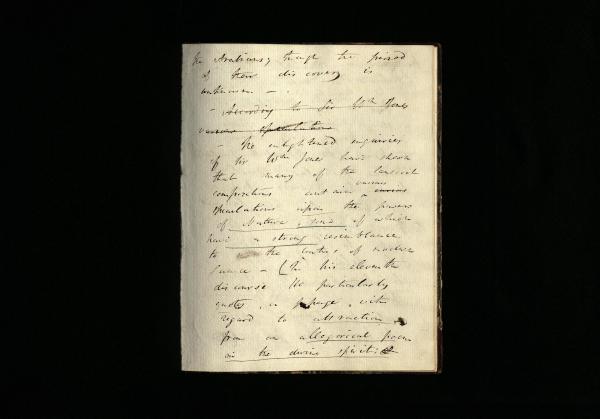 the Arabians; though the period
of their discovery is
unknown — .
- According to Sir Wm Jones
various speculations
- The enlightened enquiries
of Sir Wm Jones have shown
that many of the Sanscrit
compositions contain various curious
speculations upon the powers
of Nature, some of which
have a strong resemblance
to the doctrines of modern
science — (In his eleventh
discourse He particularly
quotes, a passage, with
regard to attraction
from an allegorical poem
on the divine spirit: